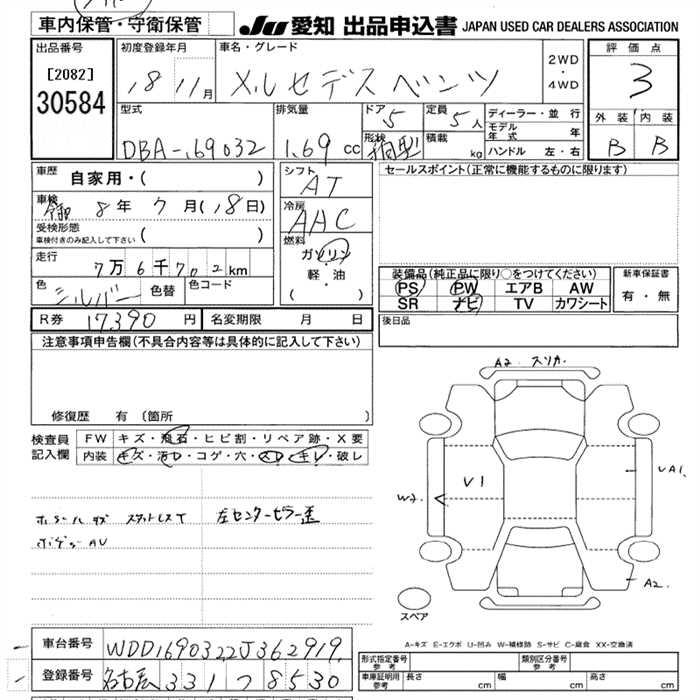 車内保管・守衛保管
JU 愛知 出品申込書 JAPAN USED CAR DEALERS ASSOCIATION
出品番号
[2082]
30584
初度登録年月
18 11月
車名・グレード
メルセデスベンツ
2WD
・
4WD
評価点
3
外装 内装
B B
型式
DBA-169032
排気量
1.69 cc
ドア 5
形状 箱型
定員 5人
積載 kg
ディーラー・並行
モデル年式 年
ハンドル 左・右
車歴
自家用・( )
車検
8年 7月(18日)
受検形態
車検付きのみ記入して下さい ( )
走行
7万6千702km
色 シルバー 色替 色コード
シフト
AT
冷房
AAC
燃料
ガソリン
・
軽・油
( )
セールスポイント(正常に機能するものに限ります)
装備品(純正品に限り○をつけてください)
PS PW エアB AW
SR ナビ TV カワシート
新車保証書
有・無
R券 17390円 名変期限 月 日
後日品
注意事項申告欄(不具合内容等は具体的に記入して下さい)
修復歴 有(箇所 )
検査員記入欄
FW キズ・飛石・ヒビ割・リペア跡・X要
内装 キズ・汚レ・コゲ・穴・スレ・キレ・破レ
ホイールキズ スタットレスT 左センターピラー歪
ボデーAU
A2 スリカ
V1
UA1
W2
A2
スペア
A-キズ E-エクボ U-凹み W-補修跡 S-サビ C-腐食 XX-交換済
車台番号 WDD1690322J362919
登録番号 名古屋 331 つ 8530
形式指定番号 参考
類別区分番号 参考
車庫証明用参考 長さ cm 幅 cm 高さ cm